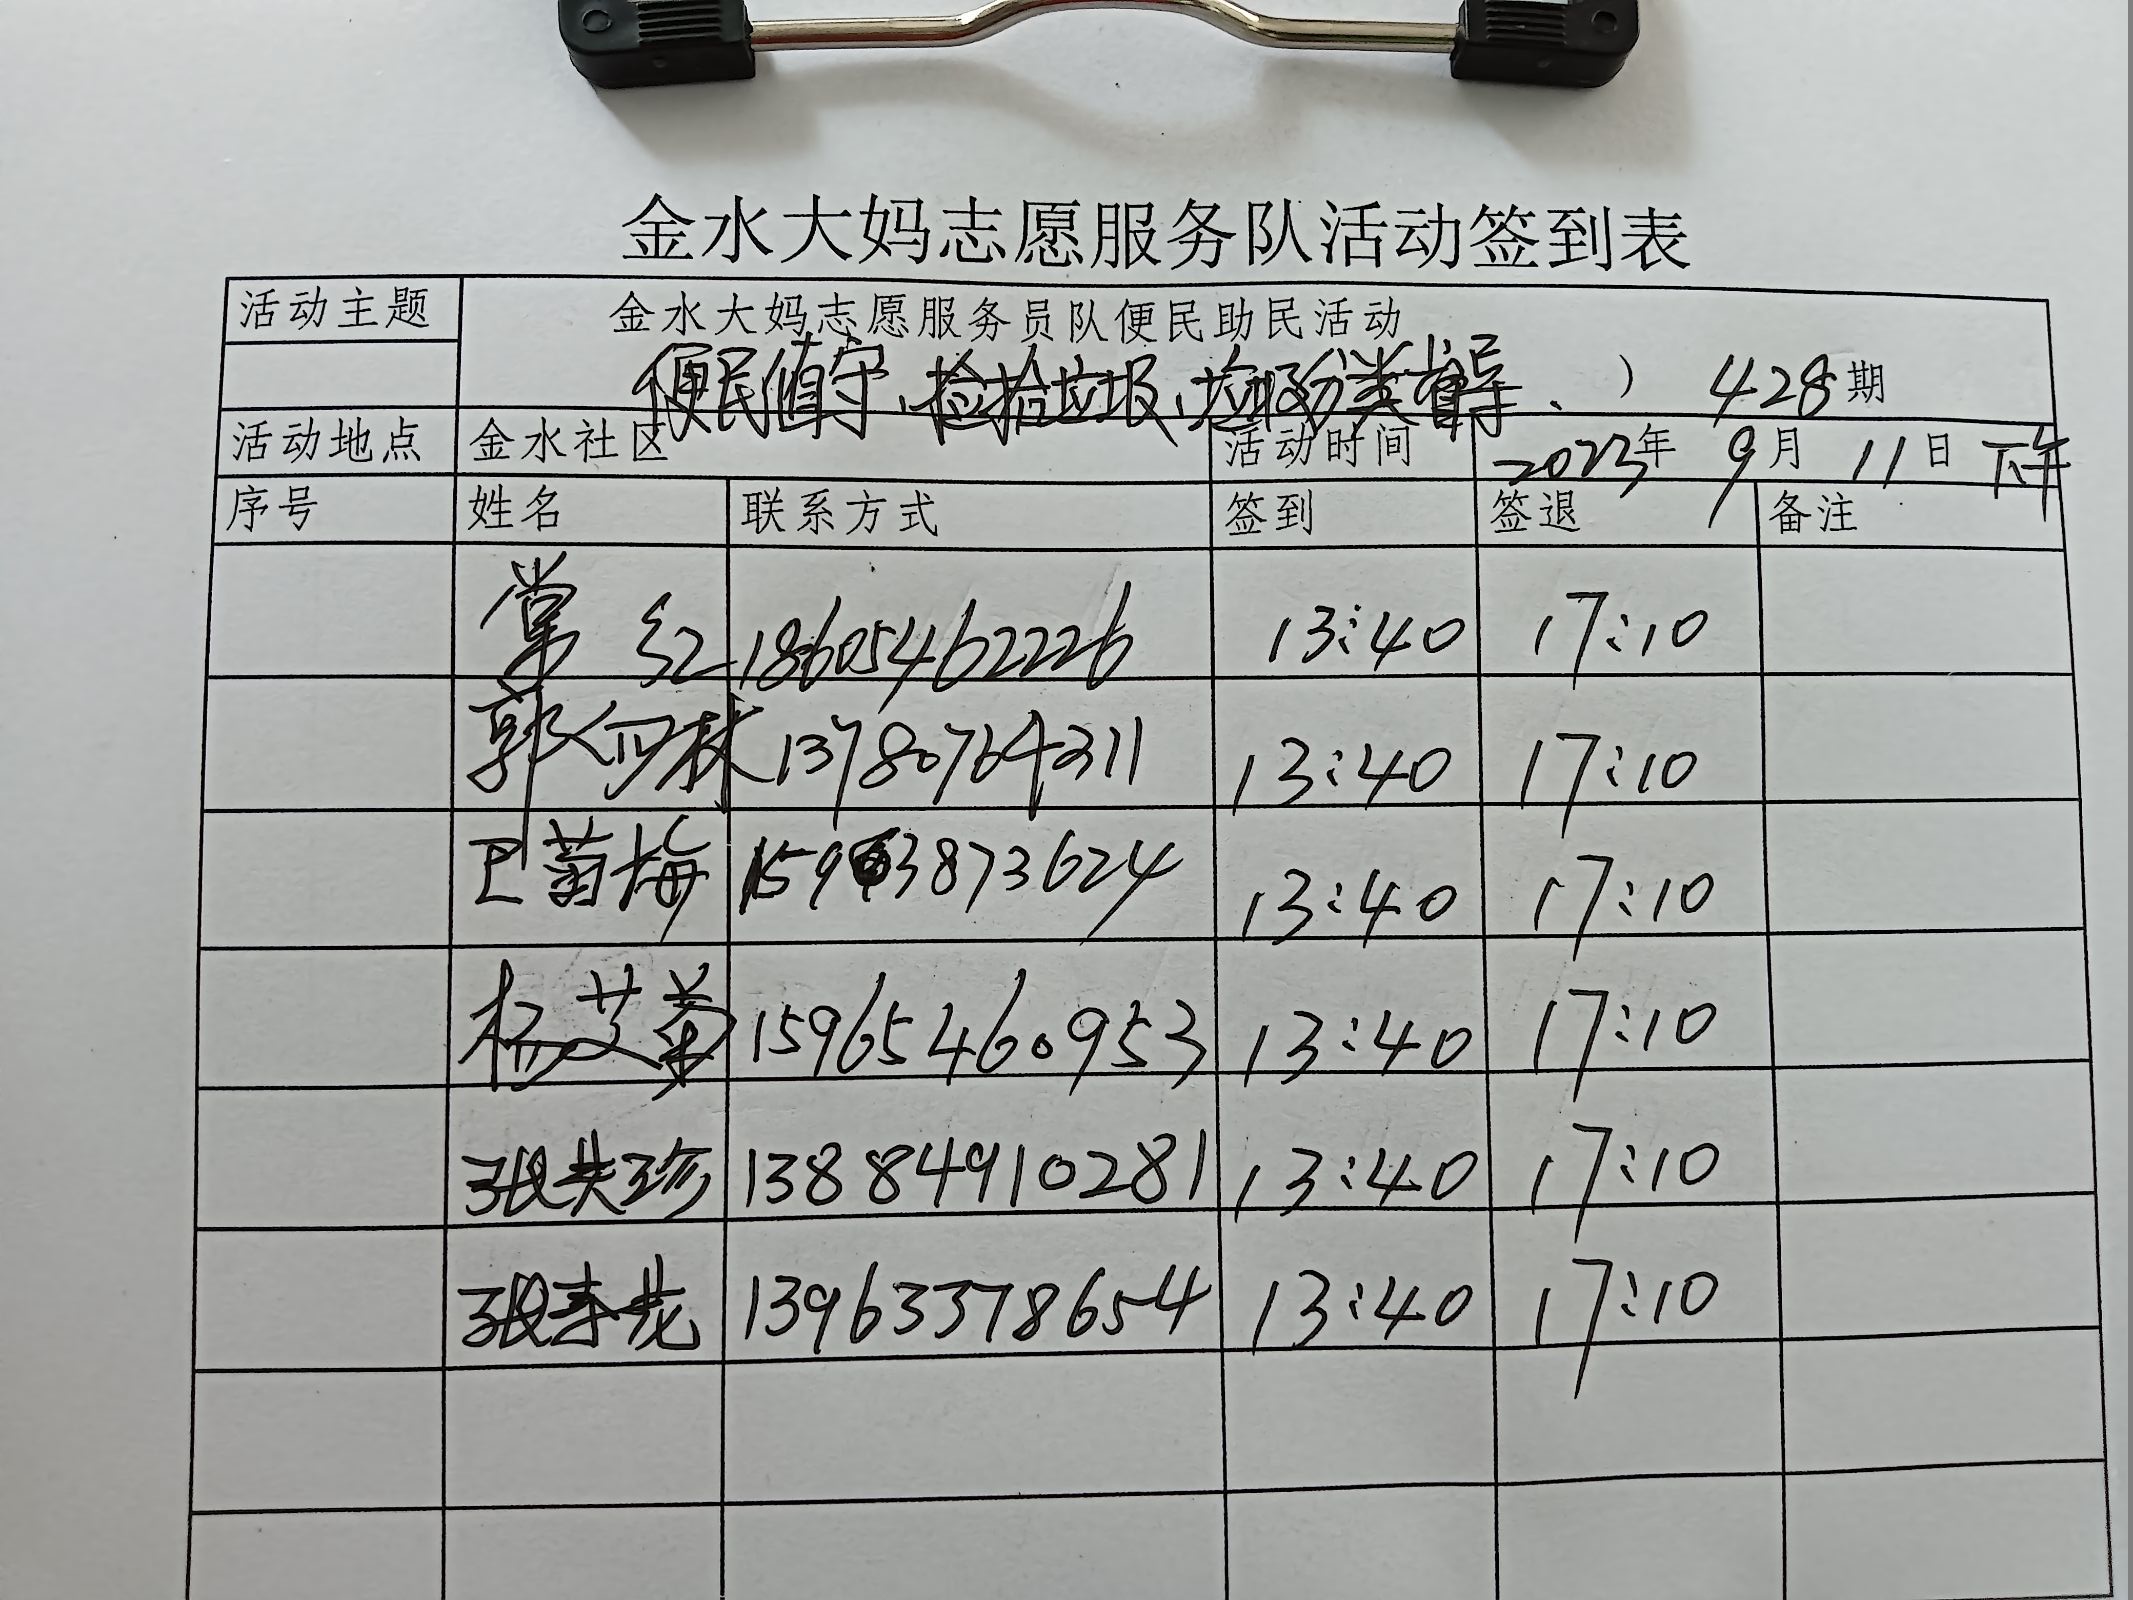 金水大妈志愿服务队活动签到表
活动主题 金水大妈志愿服务员队便民助民活动
便民值守、捡拾垃圾、垃圾分类督导、） 428期
活动地点 金水社区 活动时间 2023年 9月 11日 下午
序号 姓名 联系方式 签到 签退 备注
常红 18605462226 13:40 17:10
郭 林 13780764311 13:40 17:10
巴菊梅 15963873624 13:40 17:10
杨艾菊 15965460953 13:40 17:10
张共珍 13884910281 13:40 17:10
张 13963378654 13:40 17:10